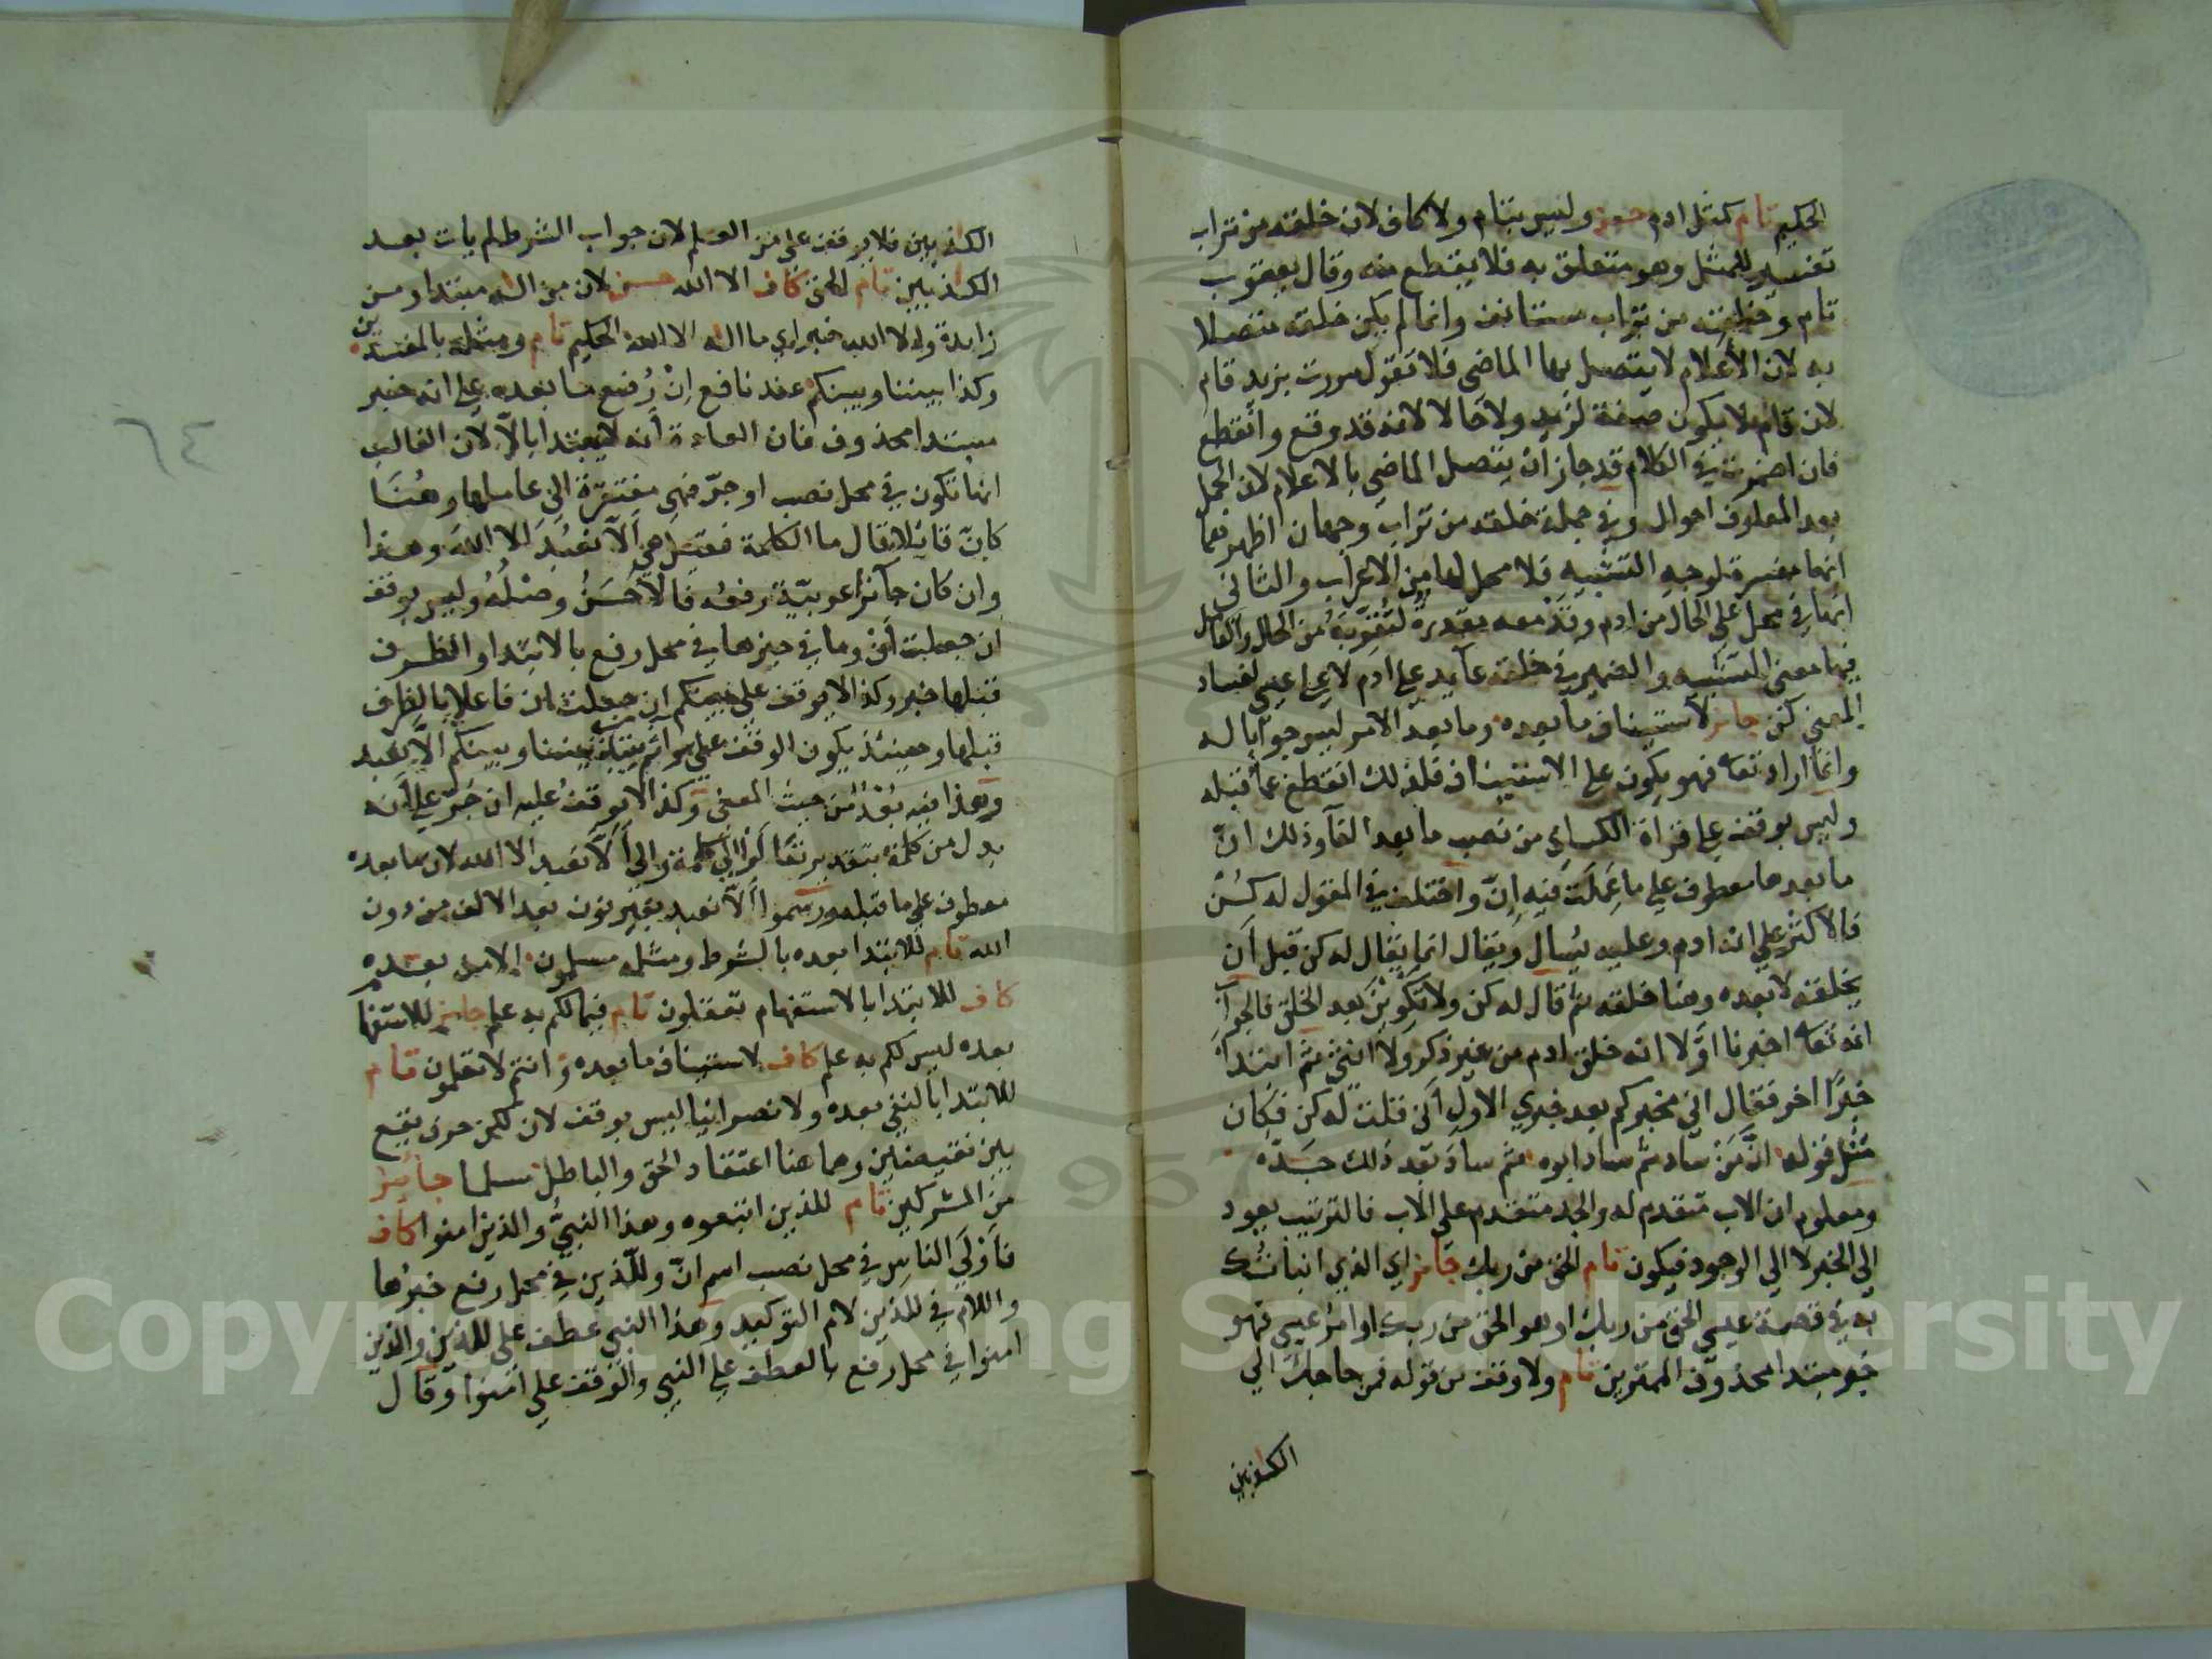 الحكيم تام كمثل ادم حسن وليس بتام ولا كاف لان خلقه من تراب
تفسير للمثل وهو متعلق به فلا يقطع منه وقال يعقوب
تام وخلقه من تراب مستانف وانما لم يكن خلقه متصلا
به لان الأعلام لا يتصل بها الماضي فلا تقول مررت بزيد قام
لان قام لا يكون صفة لزيد ولا حالا لانه قد وقع وانقطع
فان اضمرت في الكلام قد جاز ان يتصل الماضي بالاعلام لان الجمل
بعد المعارف احوال وفي جملة خلقه من تراب وجهان اظهرهما
انها مفسرة لوجه التشبيه فلا محل لها من الاعراب والثاني
انها في محل على الحال من ادم وقد معه مقدرة لتقربه من الحال والعامل
فيها معنى التشبيه والضمير في خلقه عايد على ادم لا على عيسى لفساد
المعنى كن جائز لاستيناف ما بعده وما بعد الامر ليس جوابا له
وانما اراد تعالى فهو يكون على الاستيناف فلذلك انقطع عما قبله
وليس بوقف على قراة الكساي من نصب ما بعد الفاء وذلك ان
ما بعدها معطوف على ما عملت فيه ان واختلف في المقول له كن
فالاكثر على انه ادم وعليه يسال ويقال انما يقال له كن قبل أن
يخلقه لا بعده وهنا خلقه ثم قال له كن ولا تكوين بعد الخلق فالجواب
انه تعالى اخبرنا اولا انه خلق ادم من غير ذكر ولا انثى ثم ابتدا
خبرًا اخر فقال اني مخبركم بعد خبري الاول أني قلت له كن فكان
مثل قوله ان من ساد ثم ساد ابوه ثم ساد بعد ذلك جده
ومعلوم ان الاب متقدم له والجد متقدم على الاب فالترتيب يعود
الى الخبر لا الى الوجود فيكون تام الحق من ربك جائز اي الذي انباتك
به في قصة عيسى الحق من ربك او هو الحق من ربك او امر عيسى فهو
خبر مبتدا محذوف الممترين تام ولا وقف من قوله فمن حاجك الى
الكاذبين
الكاذبين فلا يوقف على من العلم لان جواب الشرط لم يات بعد
الكاذبين تام الحق كاف الا الله حسن لان من اله مبتدا ومن
زايدة والا الله خبر اي ما اله الا الله الحكيم تام ومثله بالمفسدين
وكذا بيننا وبينكم عند نافع إن رُفع ما بعده على انه خبر
مبتدا محذوف فان العادة أنه لا يبتدا بالاّ لان الغالب
انها تكون في محل نصب او جرّ فهي مفتقرة الى عاملها وهُنَا
كانّ قائلا قال ما الكلمة فقيل هي ألاّ نعبد الا الله وهذا
وان كان جائزا عربيّة رفعه فالأحسن وصله وليس بوقف
ان جعلت أنْ وما في حيزها في محل رفع بالابتدا والظرف
قبلها خبر وكذا لا يوقف على بينكم ان جعلت ان فاعلا بالظرف
قبلها وحينئذ يكون الوقف على سواء ثم يبتدئ بيننا وبينكم الاّ نعبد
وهذا فيه بُعْدٌ من حيث المعنى وكذا لا يوقف عليه ان جر على أنه
بدل من كلمة بتقدير تعالوا الى كلمة والى ألاّ نعبد الا الله لان ما بعده
معطوف على ما قبله ورسموا ألاّ نعبد بغير نون بعد الالف من دون
الله تام للابتدا بعده بالشرط ومثله مسلمون الا من بعده
كاف للابتدا بالاستفهام تعقلون تام فيما لكم به علم جائز للاستفها
بعده ليس لكم به علم كاف لاستيناف ما بعده وانتم لا تعلمون تام
للابتدا بالنفي بعده ولا نصرانيا ليس بوقف لان لكن حرف يقع
بين نقيضين وهما هنا اعتقاد الحق والباطل مسلما جائز
من المشركين تام للذين اتبعوه وهذا النبيُّ والذين امنوا كاف
فأَوْلَى الناس في محل نصب اسم انّ وللّذين في محل رفع خبرها
واللام في للذين لام التوكيد وهذا النبي عطف على للذين والذين
امنوا في محل رفع بالعطف على النبي والوقف على امنوا وقال
٦٤
Copyright © King Saud University
1957